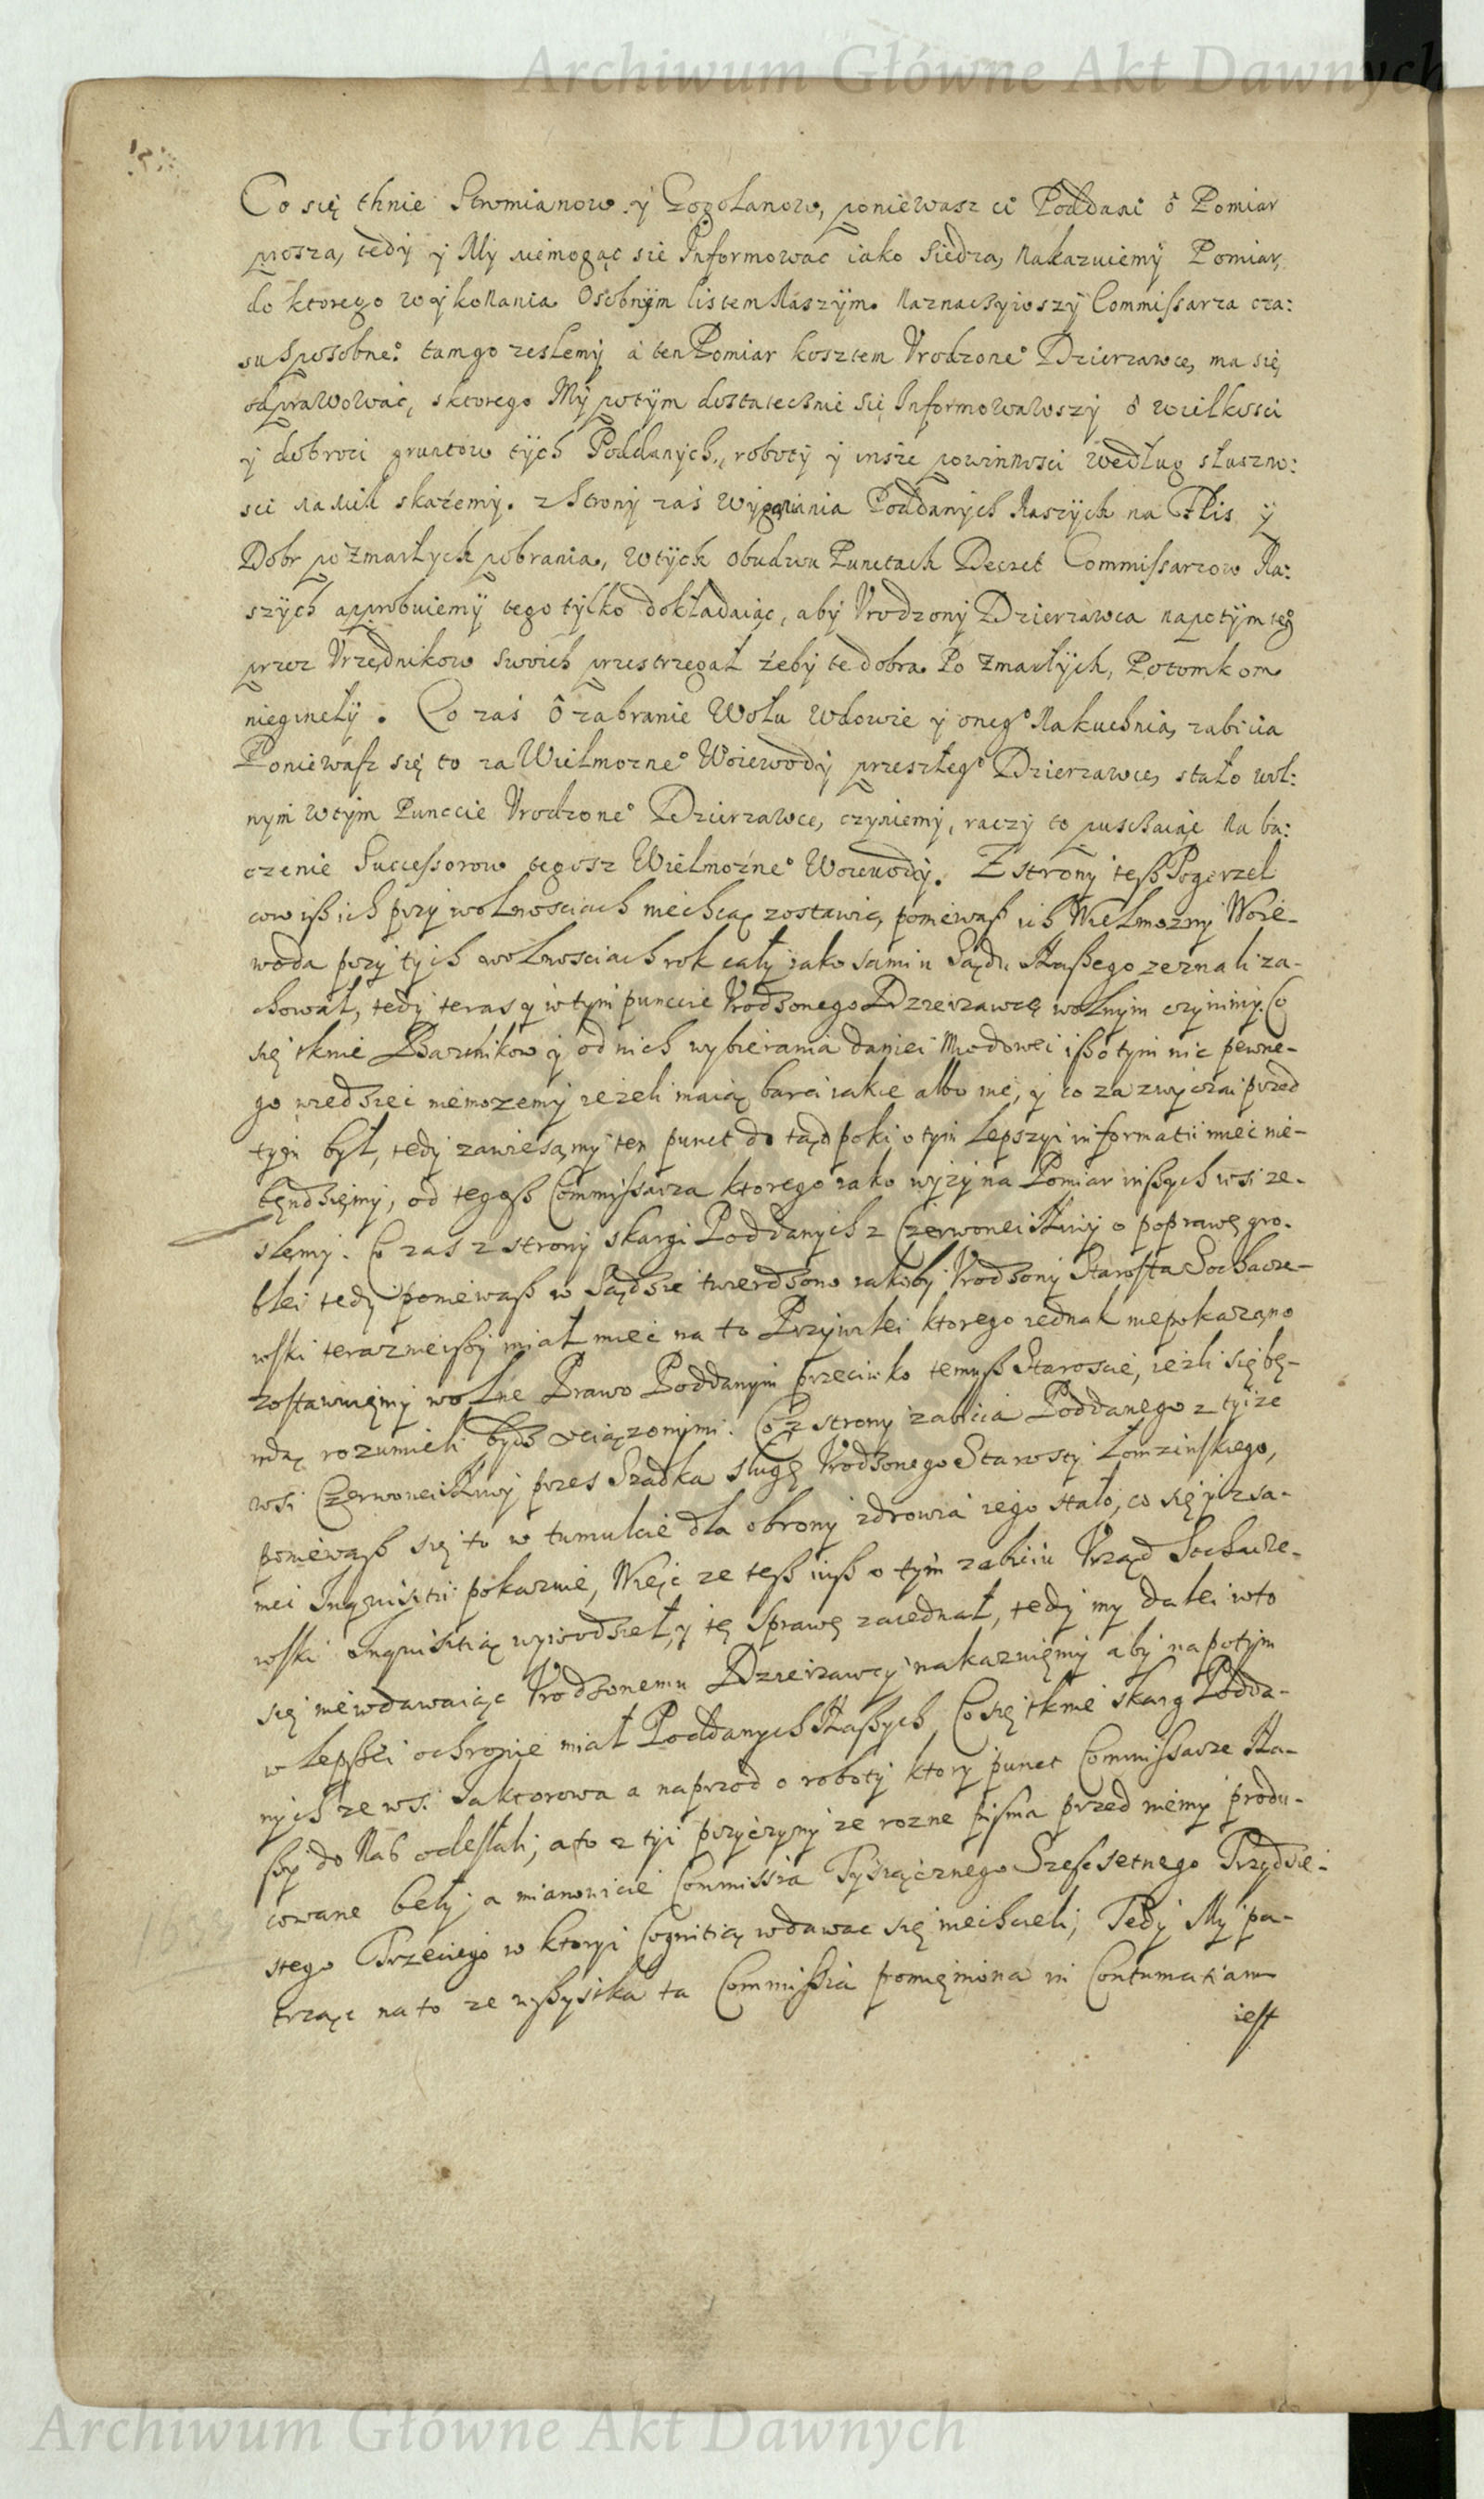 Archiwum Główne Akt Dawnych
Co się thnie Stromianow y Gogolanow, poniewasz ci Poddani ô Pomiar
prosza, tedy y My niemogąc sie Informowac iako Siedza, Nakazuiemy Pomiar,
do ktorego wykonania Osobnym listem Naszym Naznaczywszy Commissarza cza:
su Sposobne° tam go zeslemy à ten Pomiar kosztem Vrodzone° Dzierzawce, ma się
odprawowac, s ktorego My potym dostatecznie się Informowawszy ô wielkosci
y dobroci gruntow tych Poddanych, roboty y insze powinnosci według słuszno:
sci na nich skażemy. z Strony zas wyganiania Poddanych Naszych na Flis y
Dobr po Zmarłych pobrania, w tych obudwu Punctach Decret Commissarzow Na:
szych approbuiemy tego tylko dokładaiąc, aby Vrodzony Dzierzawca napotym te°
przez Vrzędnikow swoich przestrzegał żeby te dobra Po Zmarłych, Potomkom
nieginęły. Co zaś ô zabranie Wołu Wdowie y oneg° Na kuchnią zabicia
Poniewasz się to za Wielmozne° Woiewody przeszłeg° Dzierzawce, stało wol:
nym w tym Punccie Vrodzone° Dzierzawce, czyniemy, raczy to puschaiąc na ba:
czenie Successorow tegosz Wielmożne° Woiewody. Z strony teß Pogorzel
cow iß ich przy wolnosciach niechcą zostawic, poniewaß ich Wielmozny Woie-
woda przy tych wolnosciach rok cały iako sami u Sądu Naßego zeznali za-
chował, tedy teras y w tym punccie Vrodzonego Dzierzawcę wolnym czynimy. Co
się tknie Bartnikow y od nich wybierania daniei Miodowei iß o tym nic pewne-
go wiedziec niemozemy iezeli maią barci iakie albo nie, y co za zwyczai przed
tym był, tedy zawiesąmy ten punct do tąd poki o tym lepszyi informatii miec nie-
będziemy, od tegoß Commissarza ktorego iako wyzy na Pomiar inßych wsi ze-
slemy. Co zas z strony skargi Poddanych z Czerwonei Niwy o poprawę gro-
blei tedy poniewaß w Sądzie twierdzono iakoby Vrodzony Starosta Sochacze-
wski terazniejßy miał miec na to Przywilei ktorego iednak niepokazano
zostawuięmy wolne Prawo Poddanym przeciwko temuß Staroscie, iezli się bę-
ndą rozumieli bydz ociązonymi. Co z strony zabicia Poddanego z tyize
wsi Czerwonei Niwy przes Szadka sługę Vrodzonego Starosty Lomzinskiego,
poniewaß się to w tumulcie dla obrony zdrowia iego stało, co się i z sa-
mei Inquisitii pokazuie, Więc ze teß iuß o tym zabiciu Vrząd Sochacze-
wski Inquisitią wywodzieł, y tę Sprawę zaiednał, tedy my dalei w to
się niewdawaiąc Vrodzonemu Dzierzawcy nakazuięmy aby napotym
w lepßei ochronie miał Poddanych Naßych, Co się tknie skarg Podda-
nych ze wsi Iaktorowa a naprzod o roboty ktory punct Commissarze Na-
ßy do Nas odesłali, a to z tyi przyczyny ze rozne pisma przed niemy produ-
cowane beły a mianowicie Commissia Tysiącznego Szescsetnego Trzydzie-
stego Trzeciego w ktoryi Cognitią wdawac się niechcieli, Tedy My pa-
trząc na to ze wßystka ta Commißia pomięniona in Contumatiam
iest
Archiwum Główne Akt Dawnych